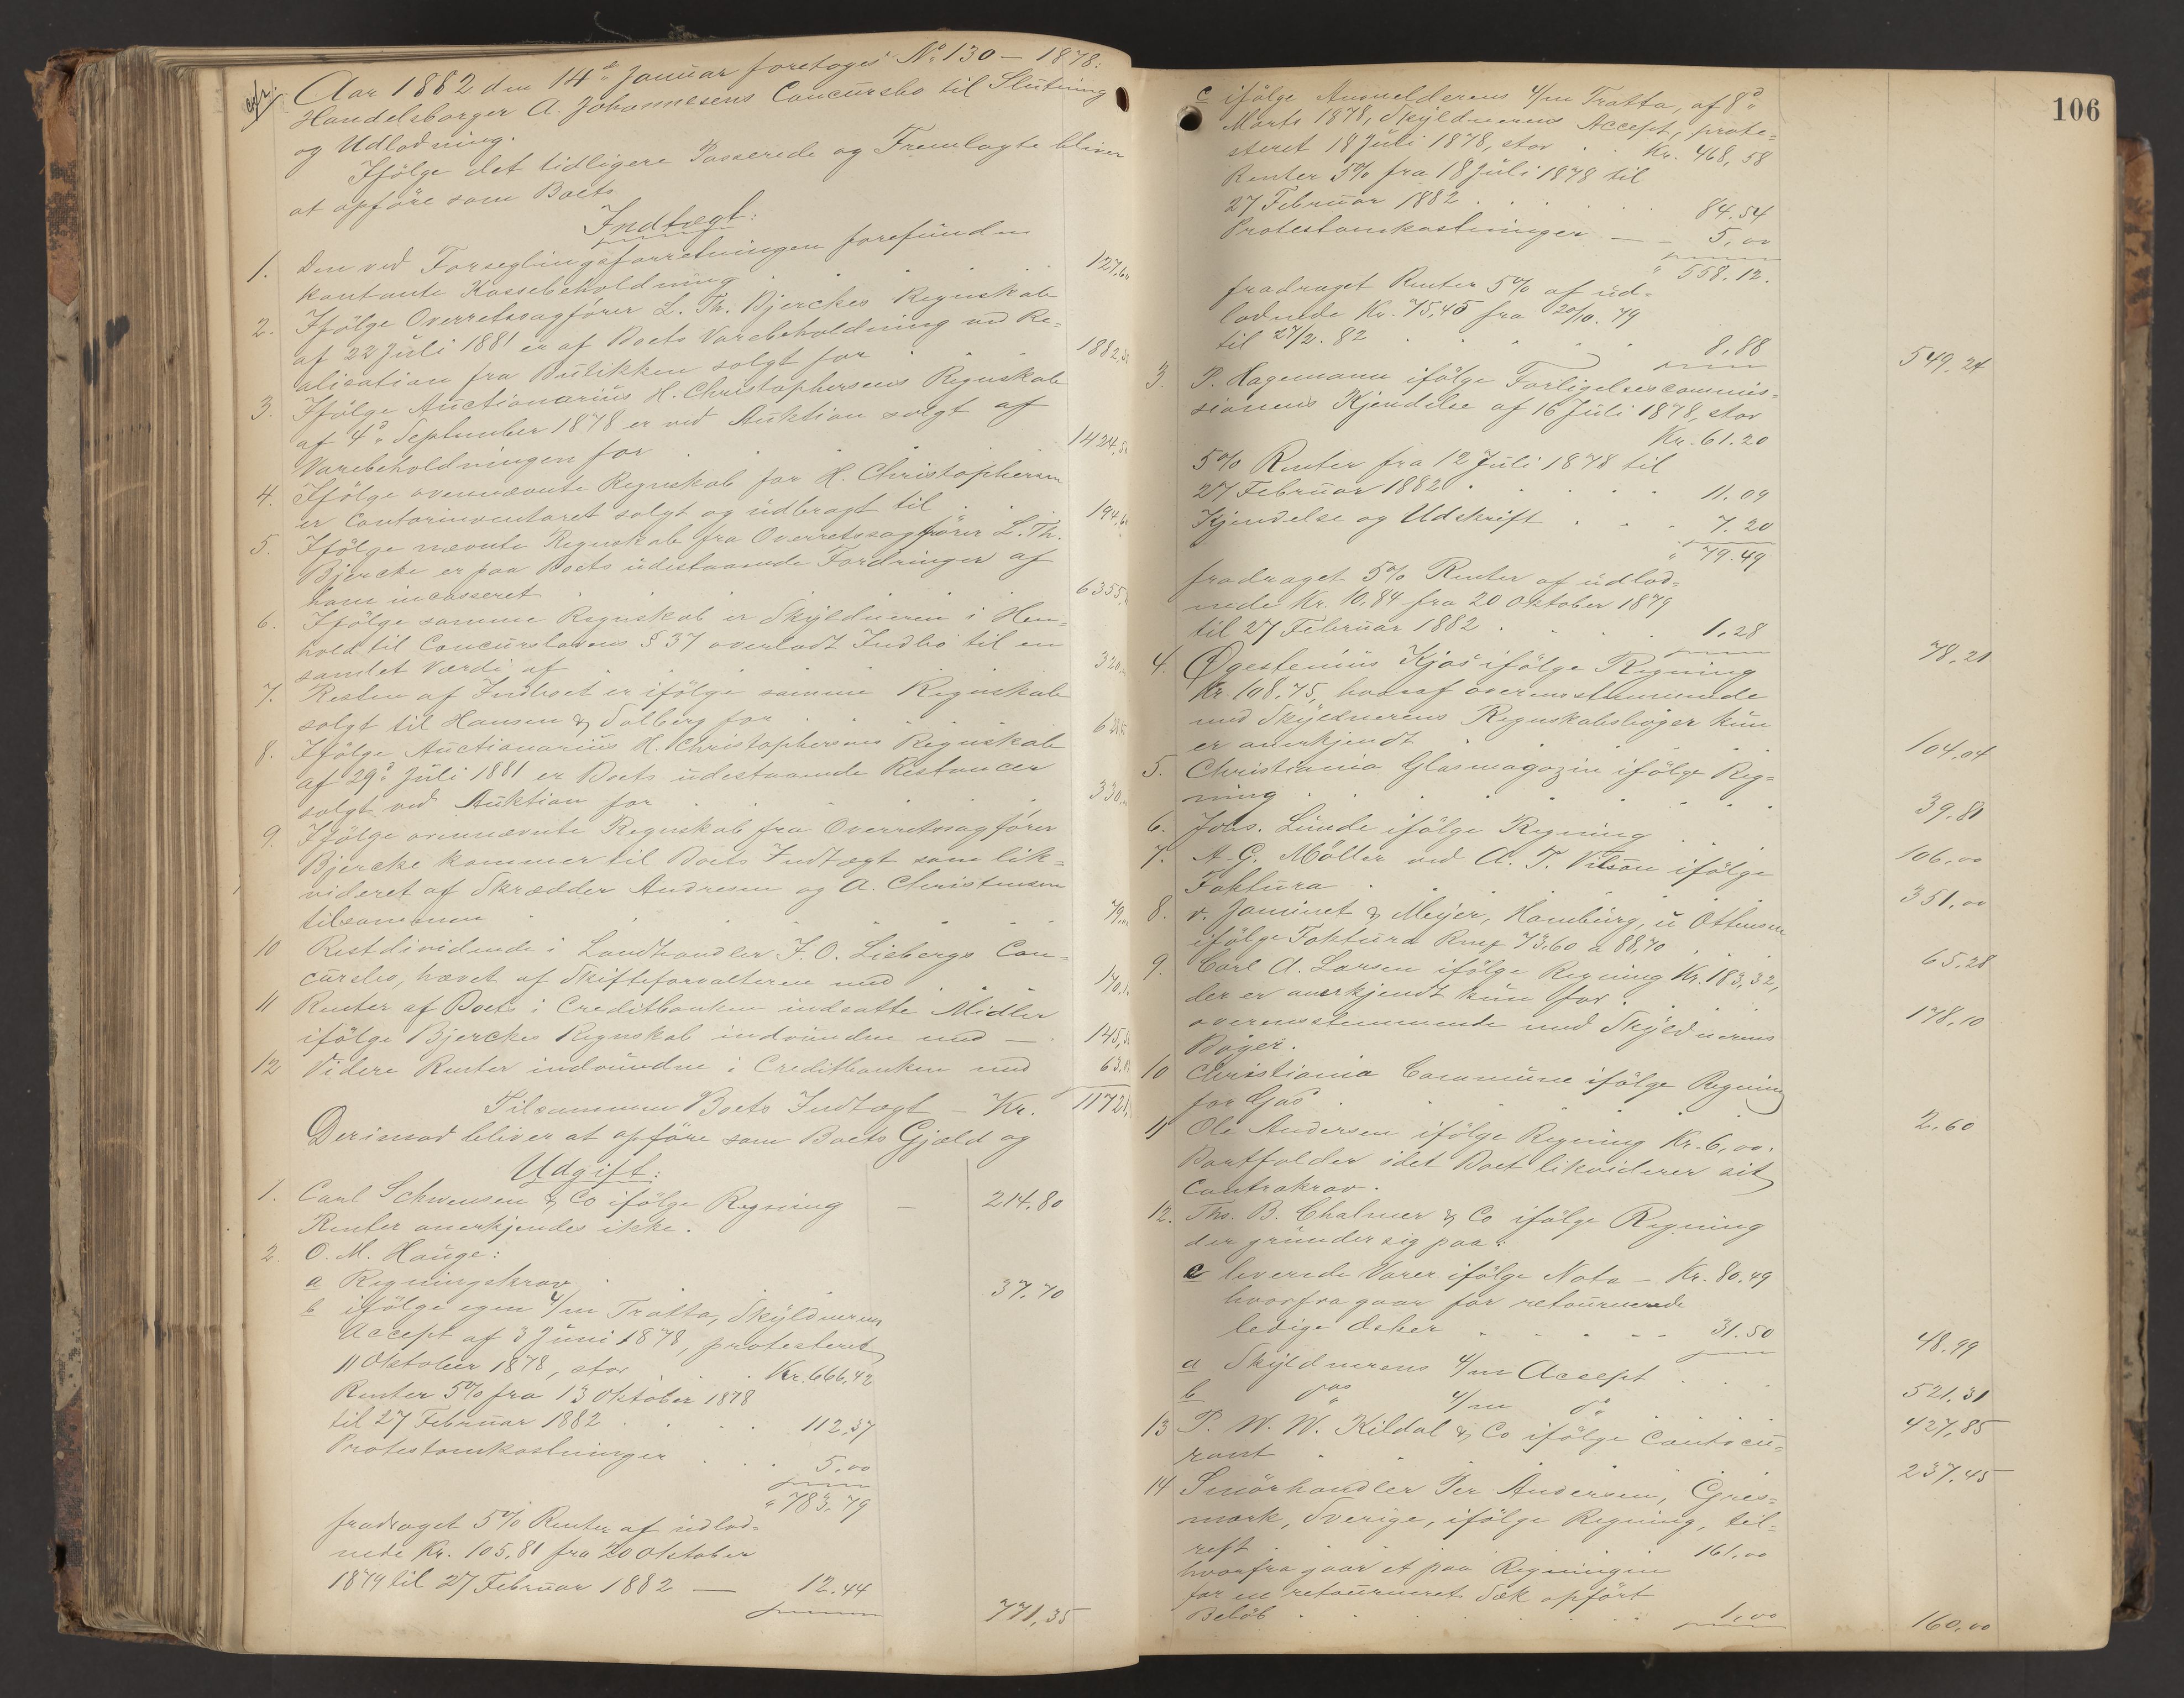 Aar 1882 den 14de Januar foretoges No 130 – 1878:
Handelsborger A. Johannesens Concursbo til Slutning
og Udlodning.
Ifølge det tidligere Passerede og Fremlagte bliver
at opføre som Boets
Indtægt:
1. Den ved Forseglingsforretningen forefundne
kontante Kassebeholdning . . . 127,60
2. Ifølge Overretssagfører L. Th. Bjerckes Regnskab
af 22 Juli 1881 er af Boets Varebeholdning ved Re=
alisation fra Butikken solgt for . . 1882,
3. Ifølge Auctionarius H. Christophersens Regnskab
af 4de September 1878 er ved Auktion solgt af
Varebeholdningen for . . . 1424,
4. Ifølge ovennævnte Regnskab for H. Christophersen
er Contorinventaret solgt og udbragt til . . 194,
5. Ifølge nævnte Regnskab fra Overretssagfører L. Th.
Bjercke er paa Boets udestaaende Fordringer af
ham incasseret . . . 6355,
6. Ifølge samme Regnskab er Skyldneren i Hen=
hold til Concurslovens § 37 overladt Indbo til en
samlet Værdi af . . . 320,
7. Resten af Indboet er ifølge samme Regnskab
solgt til Hansen & Solberg for . . .
8. Ifølge Auctionarius H. Christophersens Regnskab
af 29de Juli 1881 er Boets udestaaende Restancer
solgt ved Auktion for . . . 330,
9. Ifølge ovennævnte Regnskab fra Overretssagfører
Bjercke kommer til Boets Indtægt som lik=
videret af Skrædder Andresen og A. Christensen
tilsammen . . . 79,
10 Restdividende i Landhandler J. O. Liebergs Con=
cursbo, hævet af Skifteforvalteren med . . 170,
11 Renter af Boets i Creditbanken indsatte Midler
ifølge Bjerckes Regnskab indvundne med — 145,
12 Videre Renter indvundne i Creditbanken med 63,
Tilsammen Boets Indtægt – Kr. 11721,
Derimod bliver at opføre som Boets Gjæld og
Udgift:
1. Carl Schwensen & Co ifølge Regning — 214.80
Renter anerkjendes ikke.
2. O. M. Hauge:
a Regningskrav . . . 37.70
b ifølge egen 4/m Tratta, Skyldnerens
Accept af 3 Juni 1878, protesteret
11 Oktober 1878, stor . . Kr. 666,42
Renter 5% fra 13 Oktober 1878
til 27 Februar 1882 . . . 112,37
Protestomkostninger . . . 5.00
" 783.79
fradraget 5% Renter af udlod=
nede Kr. 105,81 fra 20 Oktober
1879 til 27 Februar 1882 — 12.44
771,35
106
c ifølge Anmelderens 4/m Tratta, af 8de
Marts 1878, Skyldnerens Accept, prote=
steret 18 Juli 1878, stor . . Kr. 468,58
Renter 5% fra 18 Juli 1878 til
27 Februar 1882 . . . 84.54
Protestomkostninger — – 5,00
" 558.12.
fradraget Renter 5% af ud=
lodnede Kr. 75,45 fra 20/10. 79
til 27/2. 82 . . . 8,88
549,24
3. P. Hagemann ifølge Forligelsescommis=
sionens Kjendelse af 16 Juli 1878, stor
Kr. 61.20
5% Renter fra 12 Juli 1878 til
27 Februar 1882 . . . 11.09
Kjendelse og Udskrift . . . 7.20
" 79.49
fradraget 5% Renter af udlod=
nede Kr. 10,84 fra 20 Oktober 1879
til 27 Februar 1882 . . . 1.28
78.21
4. Kjøs ifølge Regning
Kr. 108.75, hvoraf overensstemmende
med Skyldnerens Regnskabsbøger kun
er anerkjendt . . . 104.04
5. Christiania Glasmagazin ifølge Reg=
ning . . . 39.81
6. Johs. Lunde ifølge Regning . . 106,00
7. A. G. Møller ved A. T. ifølge
Faktura . . . 351.00
8. v. Jaminet & Meyer, Hamburg, u Ottensen
ifølge Faktura Rmf 73.60 a 88,70 . . 65,28
9. Carl A. Larsen ifølge Regning Kr. 183,32,
der er anerkjendt kun for . . 178,10
overensstemmende med Skyldnerens
Bøger.
10 Christiania Commune ifølge Regning
for Gas . . . 2.60
11 Ole Andersen ifølge Regning Kr. 6,00.
Bortfalder idet Boet likviderer sit
Contrakrav.
12. Ths. B. Chalmer & Co ifølge Regning
der grunder sig paa:
c leverede Varer ifølge Nota — Kr. 80.49
hvorfra gaar for retournerede
ledige Æsker . . . 31.50
48.99
a Skyldnerens 4/m Accept . . . 521.31
b do 4/m do 427,85
13 P. W. W. Kildal & Co ifølge Contocu=
rant . . . 237.45
14 Smørhandler Per Andersen, Gres=
mark, Sverige, ifølge Regning, til=
rest . . . 161,00
hvorfra gaar et paa Regningen
for en retourneret Sæk opført
Beløb . . . 1,00
160,00